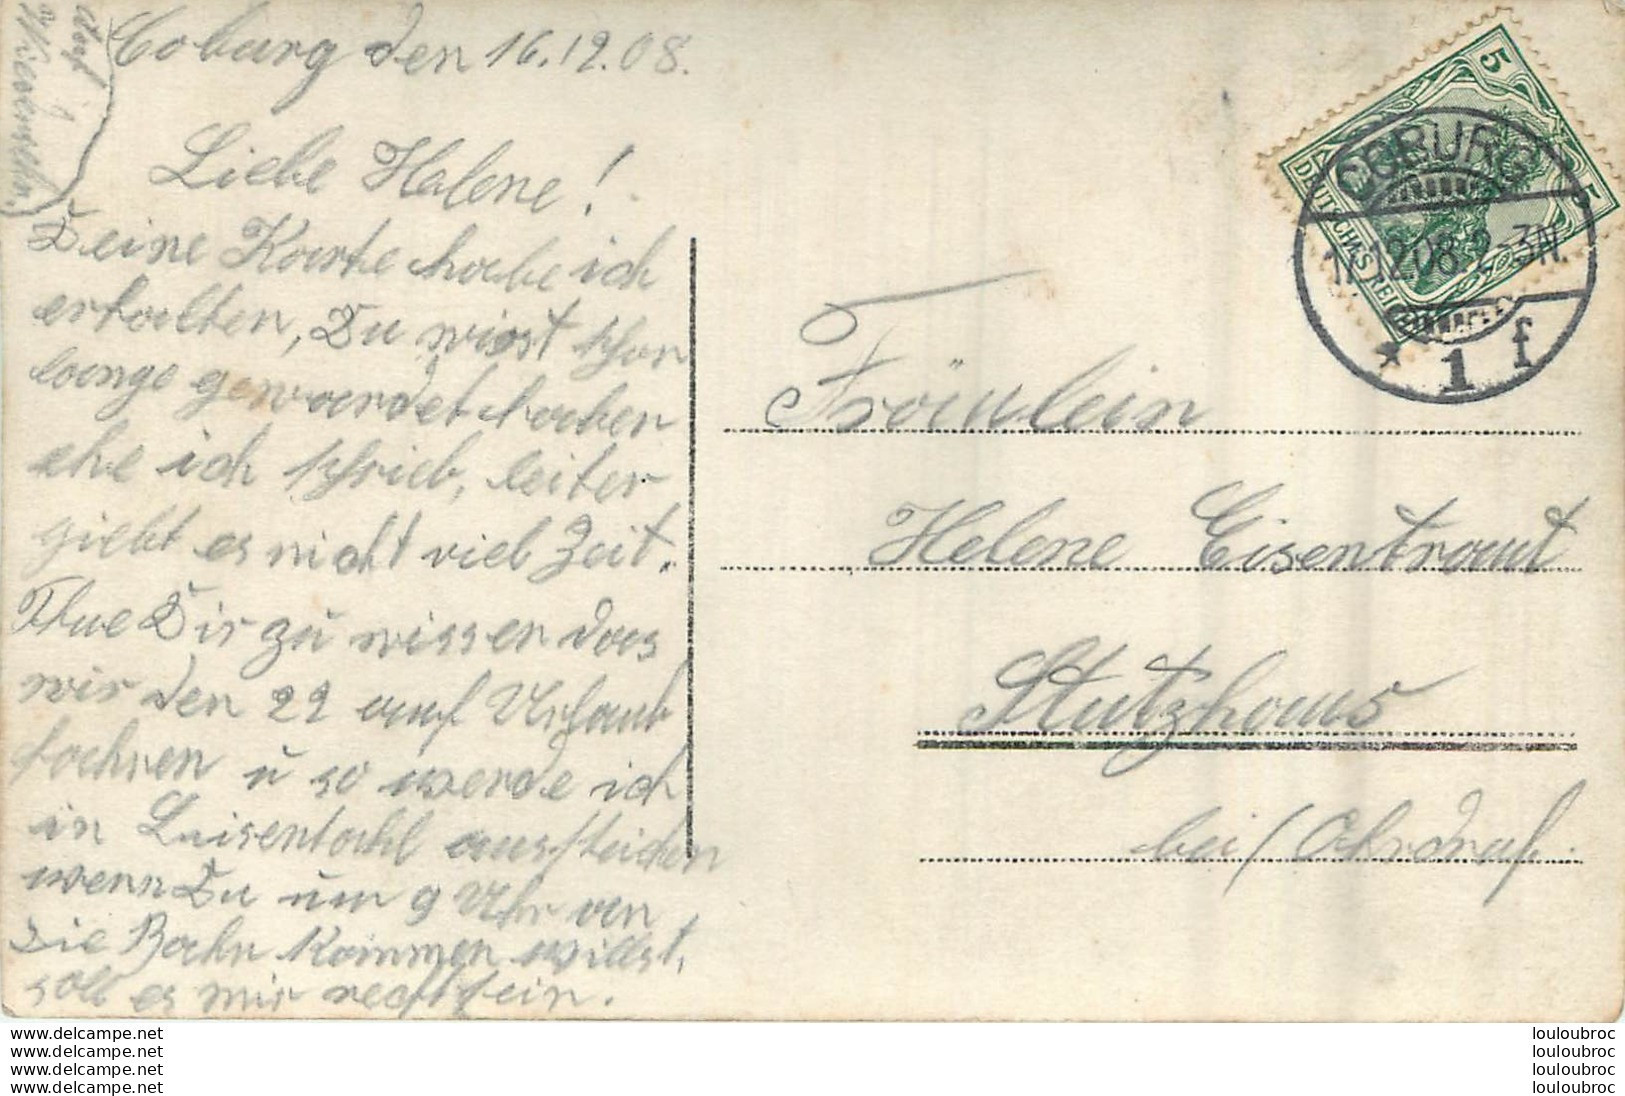 Coburg den 16.12.08.
Liebe Helene!
Deine Karte habe ich
erhalten, Du wirst schon
lange gewardet haben
ehe ich schrieb, leiter
giebt es nicht viel Zeit.
Thue Dir zu wissen das
wir den 22 auf Urlaub
fahren u so werde ich
in Luisenthahl aussteichen
wenn Du um 9 Uhr von
die Bahn kommen willst,
soll es mir recht sein.
auf
Wiedersehn.
COBURG
17.12.08.2-3N.
* 1 f
5
5
DEUTSCHES REICH
Fräulein
Helene Eisentraut
Stutzhaus
bei / Ohrdruf.
www.delcampe.net
www.delcampe.net
www.delcampe.net
www.delcampe.net
louloubroc
louloubroc
louloubroc
louloubroc